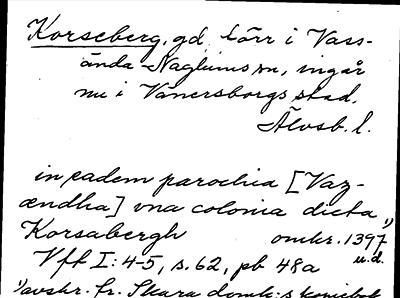 Korseberg, gd, förr i Vass-
ända-Naglums sn, ingår
nu i Vänersborgs stad,
Älvsb. l.
in eadem parochia [Vaz-
ændha] vna colonia dicta 1)
Korsabergh omkr. 1397
Vff I: 4-5, s. 62, pb 48a u.d.
1) avskr. fr. Skara domk:s kopiebok